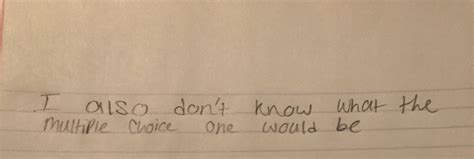 I also don't know what the
multiple choice one would be